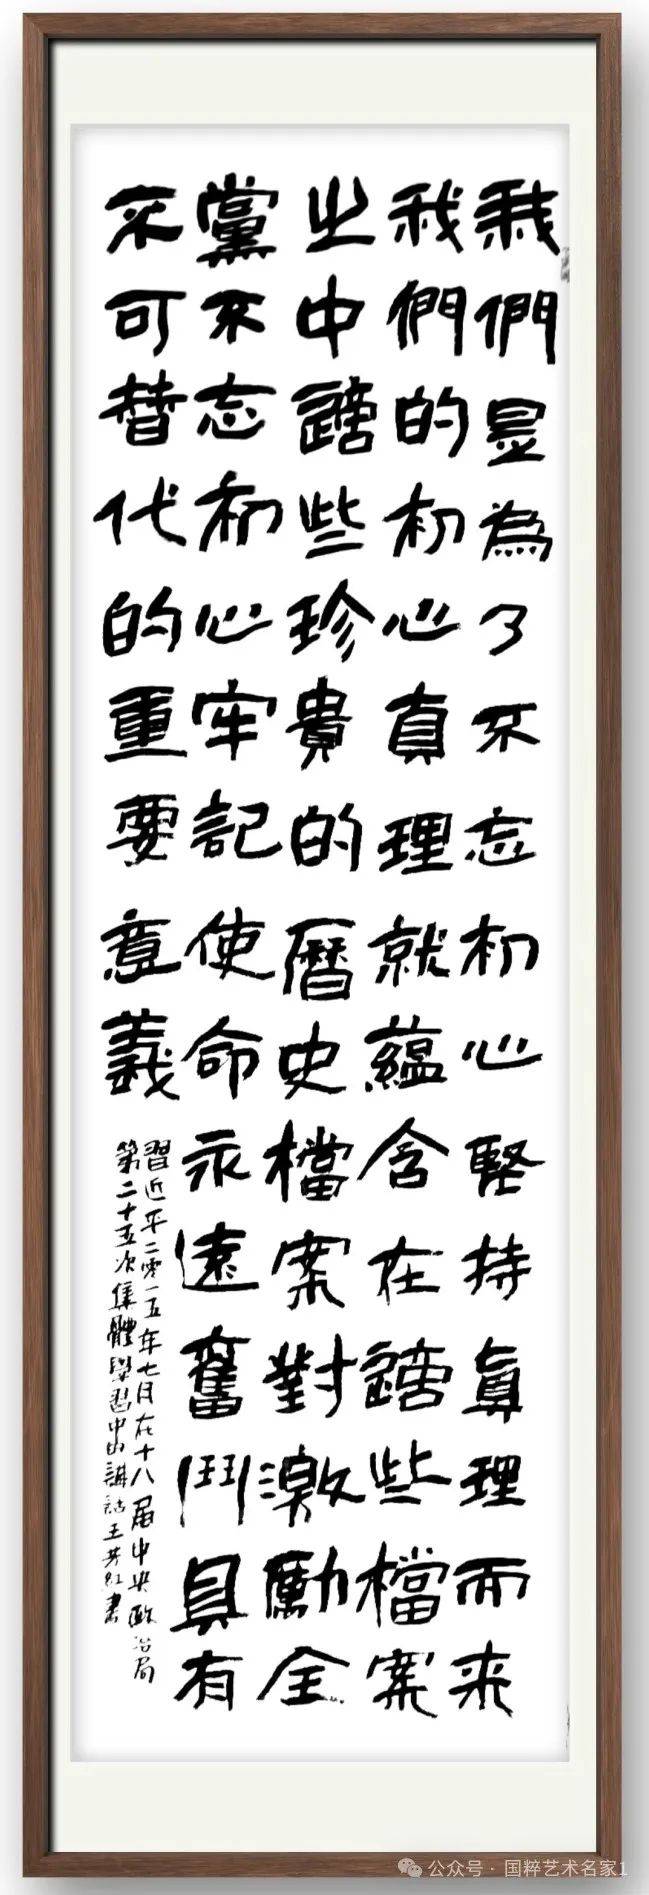 我們是為了不忘初心堅持真理而来
我們的初心真理就蘊含在這些檔案
之中這些珍貴的曆史檔案對激勵全
黨不忘初心牢記使命永遠奮鬥具有
不可替代的重要意義
習近平二零一五年七月在十八届中央政治局
第二十五次集體學習中的講話王芳红書
公众号 · 国粹艺术名家1